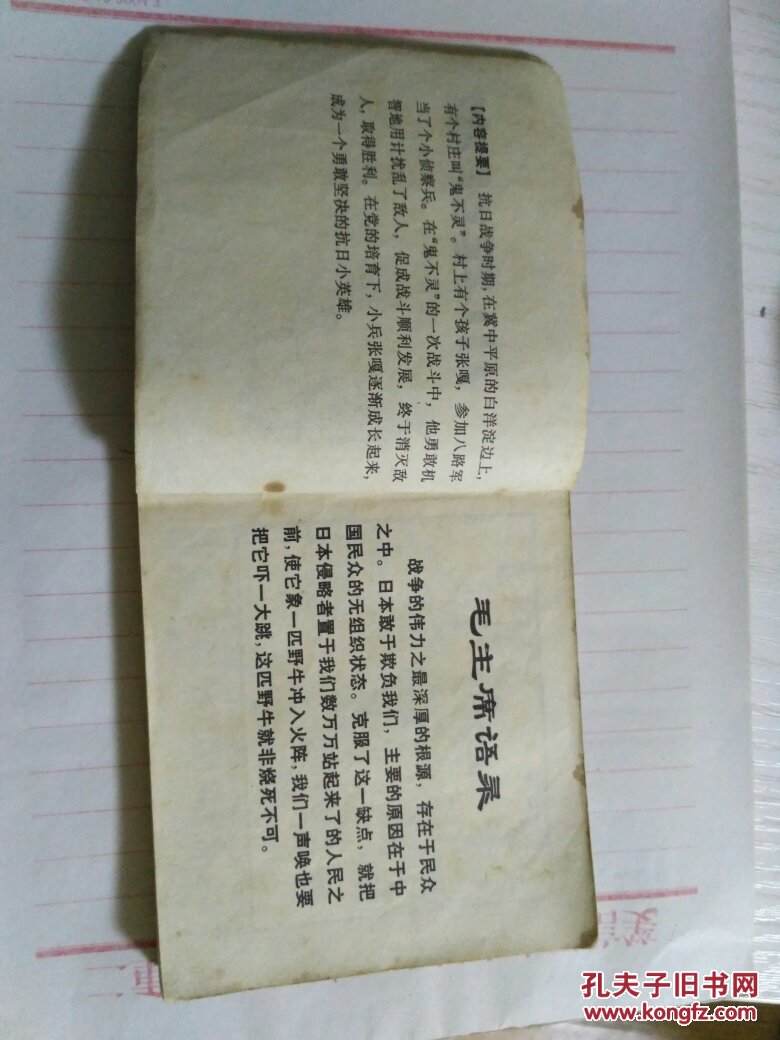 【内容提要】 抗日战争时期，在冀中平原的白洋淀边上，
有个村庄叫“鬼不灵”。村上有个孩子张嘎，参加八路军
当了个小侦察兵。在“鬼不灵”的一次战斗中，他勇敢机
智地用计扰乱了敌人，促成战斗顺利发展，终于消灭敌
人，取得胜利。在党的培育下，小兵张嘎逐渐成长起来，
成为一个勇敢坚决的抗日小英雄。
毛主席语录
战争的伟力之最深厚的根源，存在于民众
之中。日本敢于欺负我们，主要的原因在于中
国民众的无组织状态。克服了这一缺点，就把
日本侵略者置于我们数万万站起来了的人民之
前，使它象一匹野牛冲入火阵，我们一声唤也要
把它吓一大跳，这匹野牛就非烧死不可。
孔夫子旧书网
www.kongfz.com